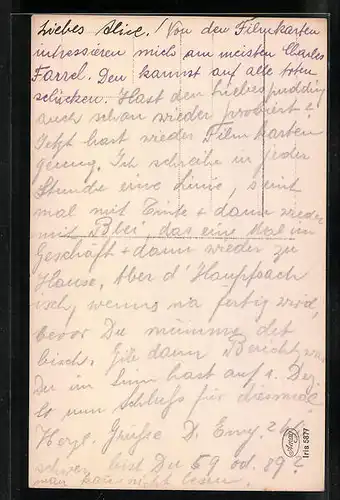 Liebes Alice! Von den Filmkarten
intressieren mich am meisten Charles
Farrel. Den kannst auf alle
schicken. Hast den Liebespudding
auch schon wieder probiert?
Jetzt hast wieder Film karten
genug. Ich schreibe in jeder
Stunde eine Linie,
mal mit Tinte + dann wieder
mit Blei, das eine Mal im
Geschäft + dann wieder zu
Hause. Aber d' Hauptsach
isch, wenns na fertig wird,
bevor Du nümme det
bisch. Gib dann Bericht, was
Du im Sinn hast auf 1. Dez.
Es nun Schluss für diesmal
Herzl. Grüsse D. Emy.
schwer bist Du 59 od. 89?
man kann's nicht lesen.
Iris 5877